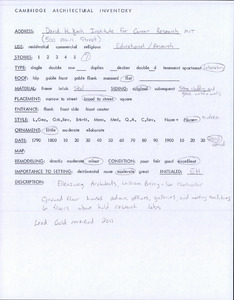 CAMBRIDGE ARCHITECTURAL INVENTORY
ADDRESS: David H. Koch Institute for Cancer Research MIT
(500 Main Street)
USE: residential commercial religious Educational/Research
STORIES: 1 2 3 4 5 6 7
TYPE: single double row duplex double d tenement apartment
ROOF: hip gable front gable gable mansard flat
MATERIAL: frame brick Steel SIDING: original
PLACEMENT: narrow to street broad to street square
ENTRANCE: flank front side front center
STYLE: Modern
ORNAMENT: little moderate elaborate
DATE: 1790 1810 10 20 30 40 50 60 70 80 90 1900 10 20 30
MAP:
REMODELING: drastic moderate minor CONDITION: poor fair good excellent
IMPORTANCE TO SETTING: detrimental none moderate great INITIALED: EH
DESCRIPTION: Ellenzweig Architects William Berry - Contractor
Ground floor houses admin offices, galleries, and meeting
floors above hold research labs
Leed Gold 2011